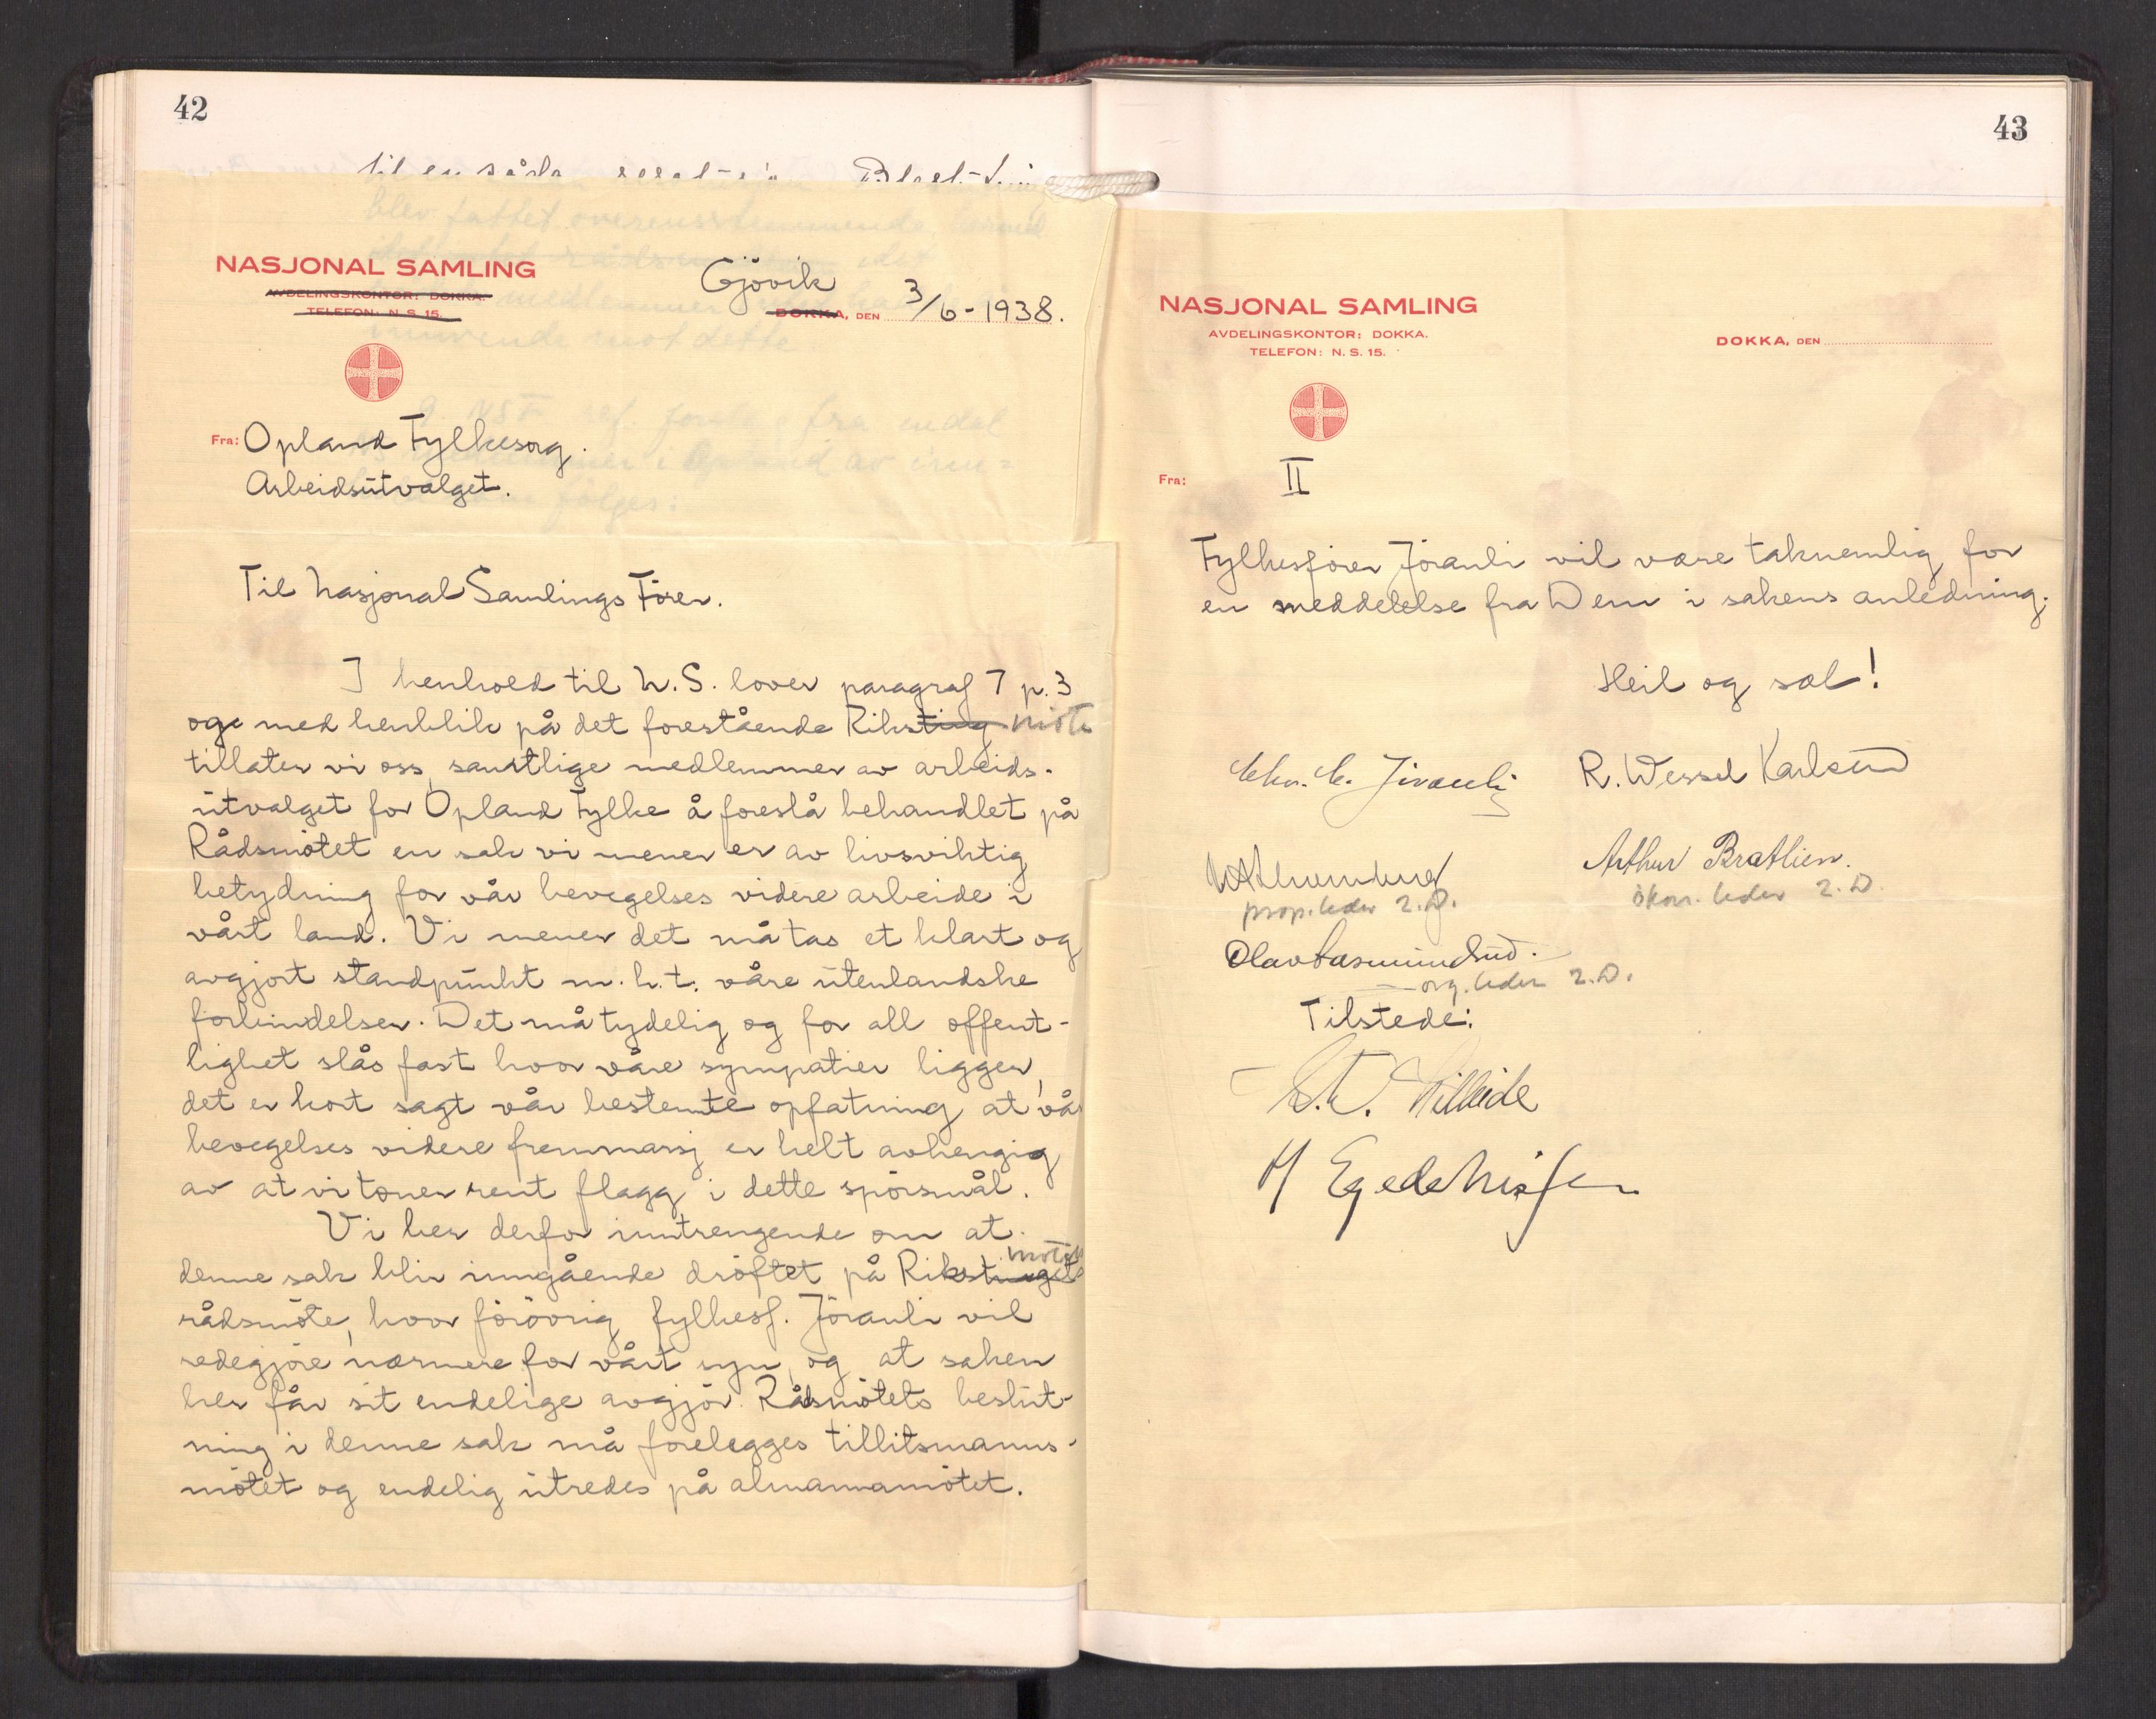 42
til en såda
NASJONAL SAMLING
AVDELINGSKONTOR: DOKKA.
TELEFON: N. S. 15.
Gjövik
DOKKA, DEN 3/6-1938.
Fra: Opland Fylkesorg.
Arbeidsutvalget.
Til Nasjonal Samlings Förer.
I henhold til N.S. lover paragraf 7 p. 3
og med henblik på det forestående Riksting möte
tillater vi oss, samtlige medlemmer av arbeids-
utvalget for Opland Fylke å foreslå behandlet på
Rådsmötet en sak vi mener er av livsviktig
betydning for vår bevegelses videre arbeide i
vårt land. Vi mener det må tas et klart og
avgjort standpunkt m.h.t. våre utenlandske
forbindelser. Det må tydelig og for all offent-
lighet slås fast hvor våre sympatier ligger,
det er kort sagt vår bestemte opfatning at vår
bevegelses videre fremmarsj er helt avhengig
av at vi toner rent flagg i dette spörsmål.
Vi ber derfor inntrengende om at
denne sak blir inngående dröftet på Rikstingets mötets
rådsmöte, hvor forövrig fylkesf. Jöranli vil
redegjöre nærmere for vårt syn, og at saken
her får sit endelige avgjör. Rådsmötets beslut-
ning i denne sak må forelegges tillitsmanns-
mötet og endelig utredes på almannamötet.
43
NASJONAL SAMLING
AVDELINGSKONTOR: DOKKA.
TELEFON: N. S. 15.
DOKKA, DEN
Fra: II
Fylkesförer Jöranli vil være taknemlig for
en meddelelse fra Dem i sakens anledning.
Heil og sæl!
Chr. C. Jöranli
R. Wessel Karlsen
prop. leder 2. D.
Arthur Bratlien.
ökon. leder 2. D.
Olav Aasmundsud.
org. leder 2. D.
Tilstede:
Hilleide
H Egede Nissen